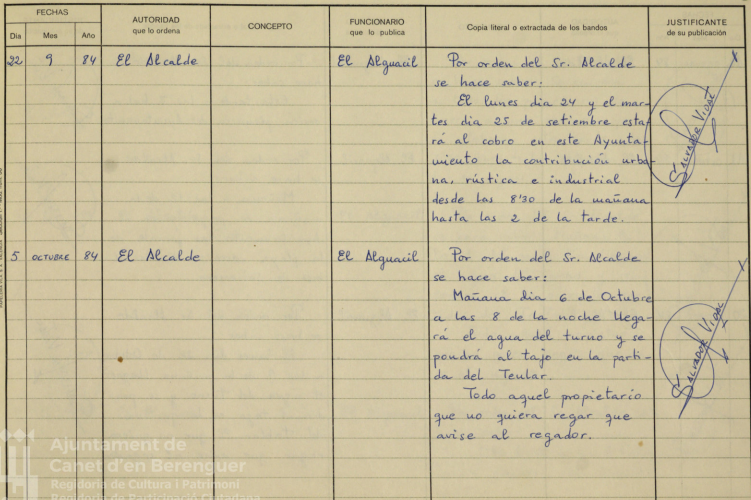 FECHAS
Dia Mes Año
AUTORIDAD
que lo ordena
CONCEPTO
FUNCIONARIO
que lo publica
Copia literal o extractada de los bandos
JUSTIFICANTE
de su publicación
22 9 84 El Alcalde El Alguacil
Por orden del Sr. Alcalde
se hace saber:
El lunes dia 24 y el mar-
tes dia 25 de setiembre esta-
rá al cobro en este Ayunta-
miento la contribución urba-
na, rústica e industrial
desde las 8'30 de la mañana
hasta las 2 de la tarde.
SALVADOR VIDAL
5 OCTUBRE 84 El Alcalde El Alguacil
Por orden del Sr. Alcalde
se hace saber:
Mañana dia 6 de Octubre
a las 8 de la noche llega-
rá el agua del turno y se
pondrá al tajo en la parti-
da del Teular.
Todo aquel propietario
que no quiera regar que
avise al regador.
SALVADOR VIDAL
Ajuntament de
Canet d'en Berenguer
Regidoria de Cultura i Patrimoni
Regidoria de Participació Ciutadana